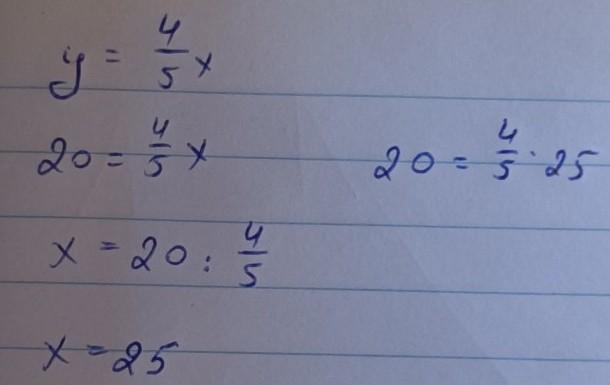 y = 4/5 x
20 = 4/5 x
20 = 4/5 · 25
x = 20 : 4/5
x = 25